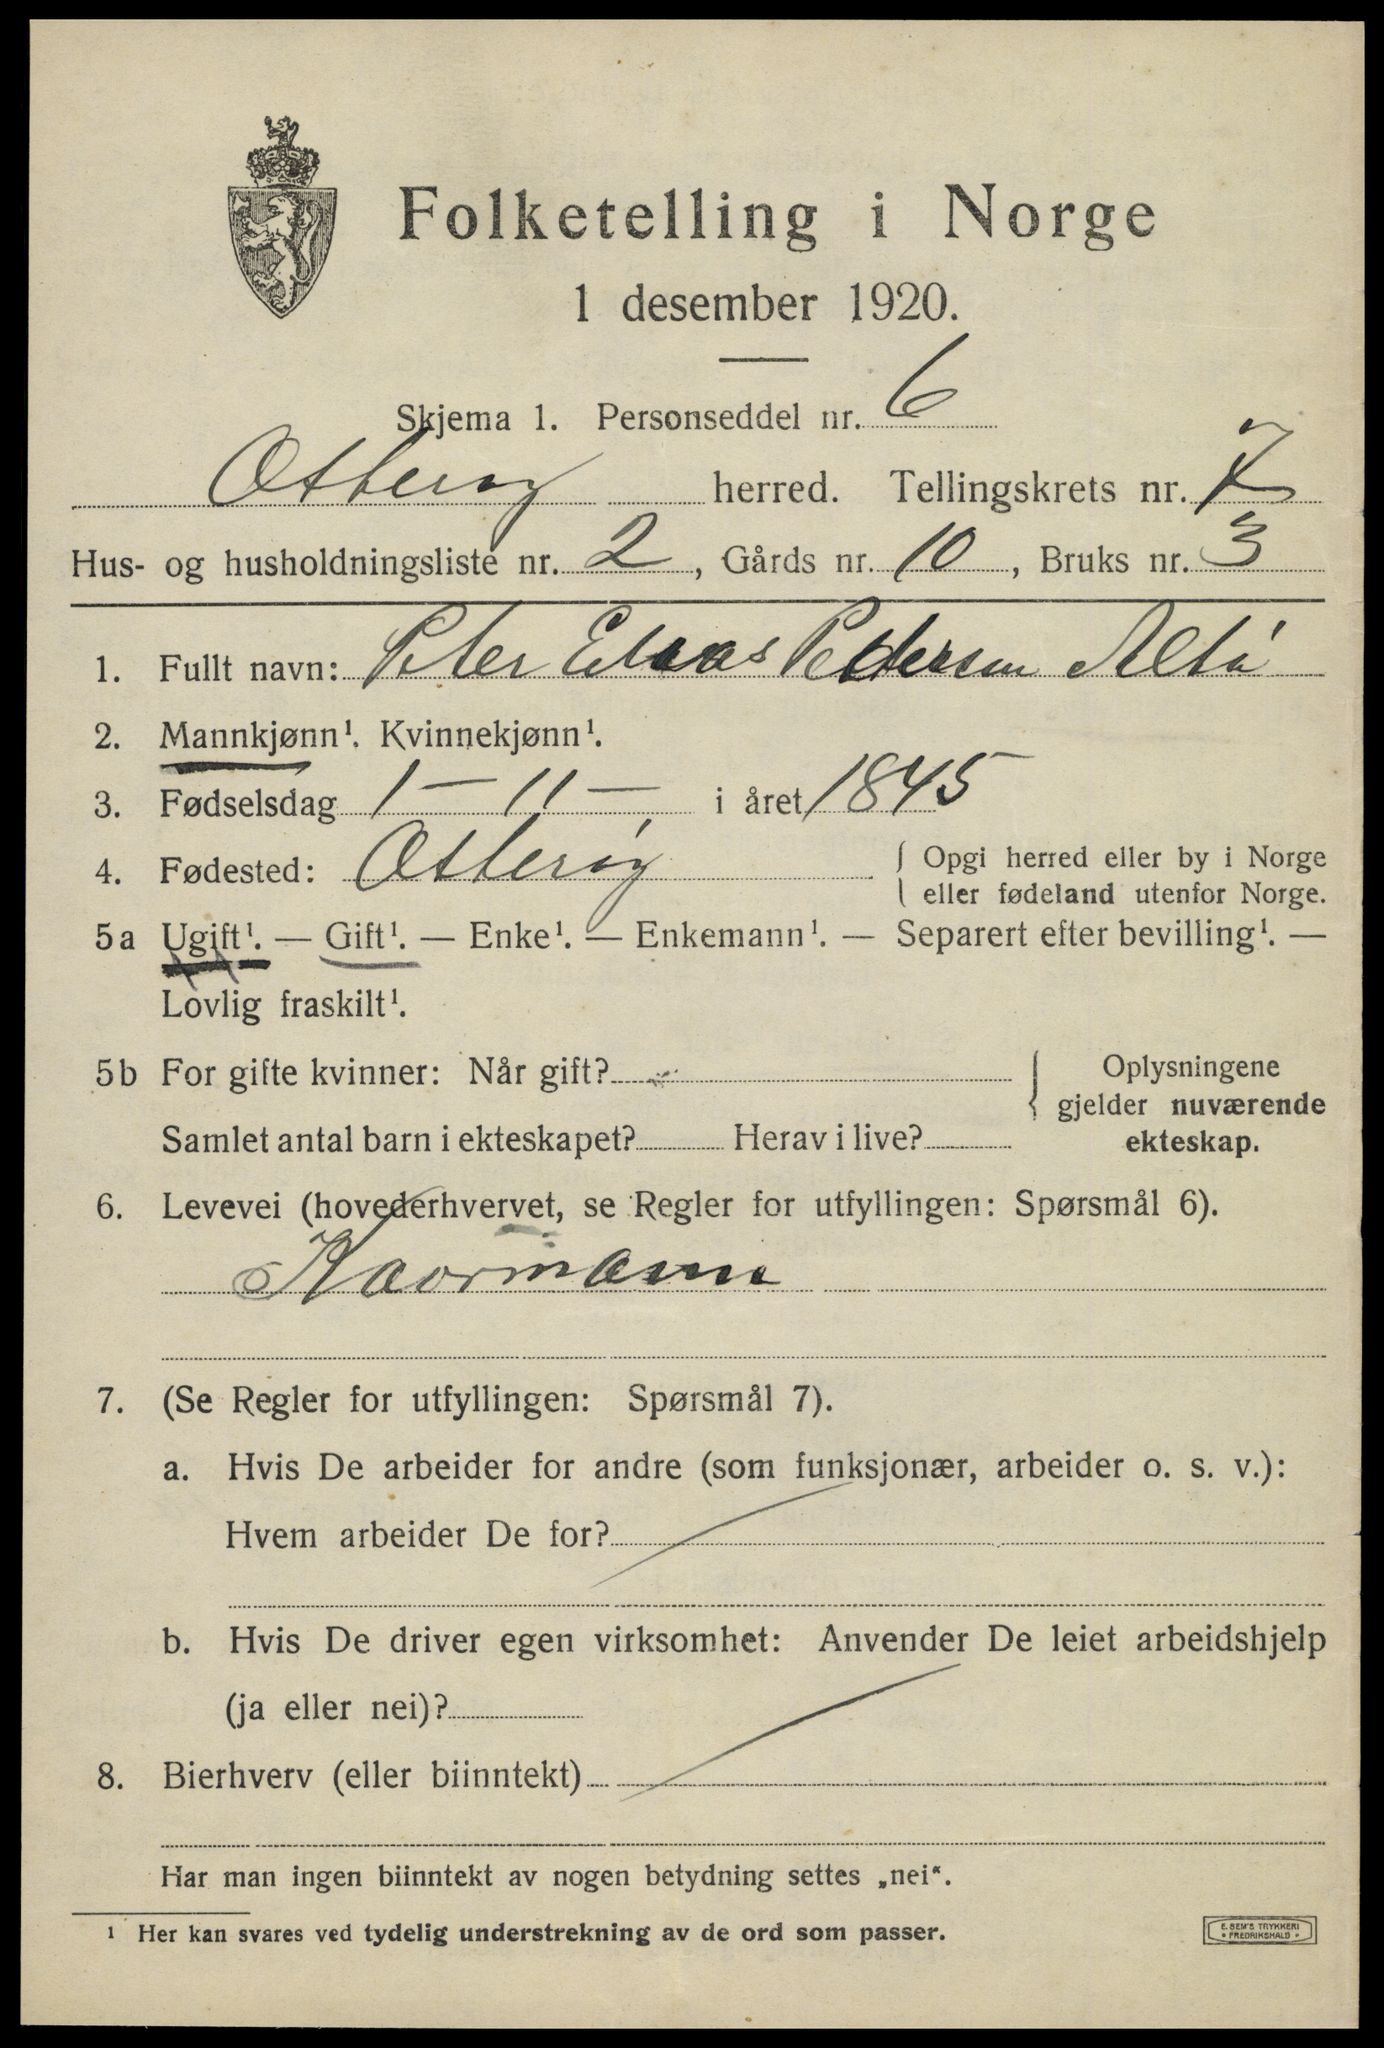 Folketelling i Norge
1 desember 1920.
Skjema 1. Personseddel nr. 6
Otterøy herred. Tellingskrets nr. 7
Hus- og husholdningsliste nr. 2, Gårds nr. 10, Bruks nr. 3
1. Fullt navn: Peter Elias Pedersen Altå
2. Mannkjønn¹. Kvinnekjønn¹.
3. Fødselsdag 1 – 11 – i året 1845
4. Fødested: Otterøy { Opgi herred eller by i Norge
eller fødeland utenfor Norge.
5a Ugift¹. — Gift¹. — Enke¹. — Enkemann¹. — Separert efter bevilling¹. —
Lovlig fraskilt¹.
5b For gifte kvinner: Når gift? { Oplysningene
gjelder nuværende
Samlet antal barn i ekteskapet? Herav i live? ekteskap.
6. Levevei (hovederhvervet, se Regler for utfyllingen: Spørsmål 6).
Kaarmann
7. (Se Regler for utfyllingen: Spørsmål 7).
a. Hvis De arbeider for andre (som funksjonær, arbeider o. s. v.):
Hvem arbeider De for?
b. Hvis De driver egen virksomhet: Anvender De leiet arbeidshjelp
(ja eller nei)?
8. Bierhverv (eller biinntekt)
Har man ingen biinntekt av nogen betydning settes „nei“.
¹ Her kan svares ved tydelig understrekning av de ord som passer.
E. SEM'S TRYKKERI
FREDRIKSHALD